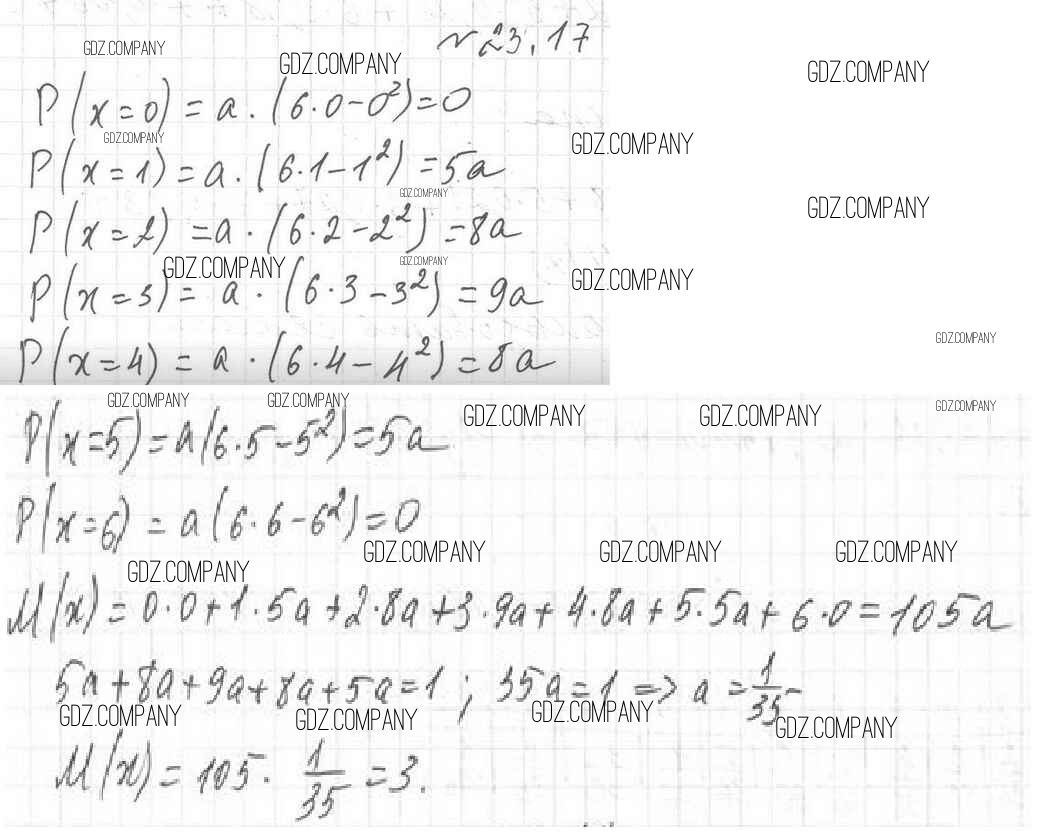 № 23.17
GDZ.COMPANY
GDZ.COMPANY
GDZ.COMPANY
P(x=0) = a · (6·0-0²)=0
GDZ.COMPANY
GDZ.COMPANY
P(x=1) = a · (6·1-1²) =5a
GDZ.COMPANY
GDZ.COMPANY
P(x=2) =a · (6·2-2²) =8a
GDZ.COMPANY
GDZ.COMPANY
GDZ.COMPANY
P(x=3) = a · (6·3-3²) =9a
GDZ.COMPANY
P(x=4) = a · (6·4-4²)=8a
GDZ.COMPANY
GDZ.COMPANY
GDZ.COMPANY
GDZ.COMPANY
GDZ.COMPANY
P(x=5)=a(6·5-5²)=5a
P(x=6) = a(6·6-6²)=0
GDZ.COMPANY
GDZ.COMPANY
GDZ.COMPANY
GDZ.COMPANY
M(x)=0·0+1·5a+2·8a+3·9a+4·8a+5·5a+6·0=105a
5a+8a+9a+8a+5a=1; 35a=1=> a=1/35
GDZ.COMPANY
GDZ.COMPANY
GDZ.COMPANY
GDZ.COMPANY
M(x)=105· 1/35 =3.